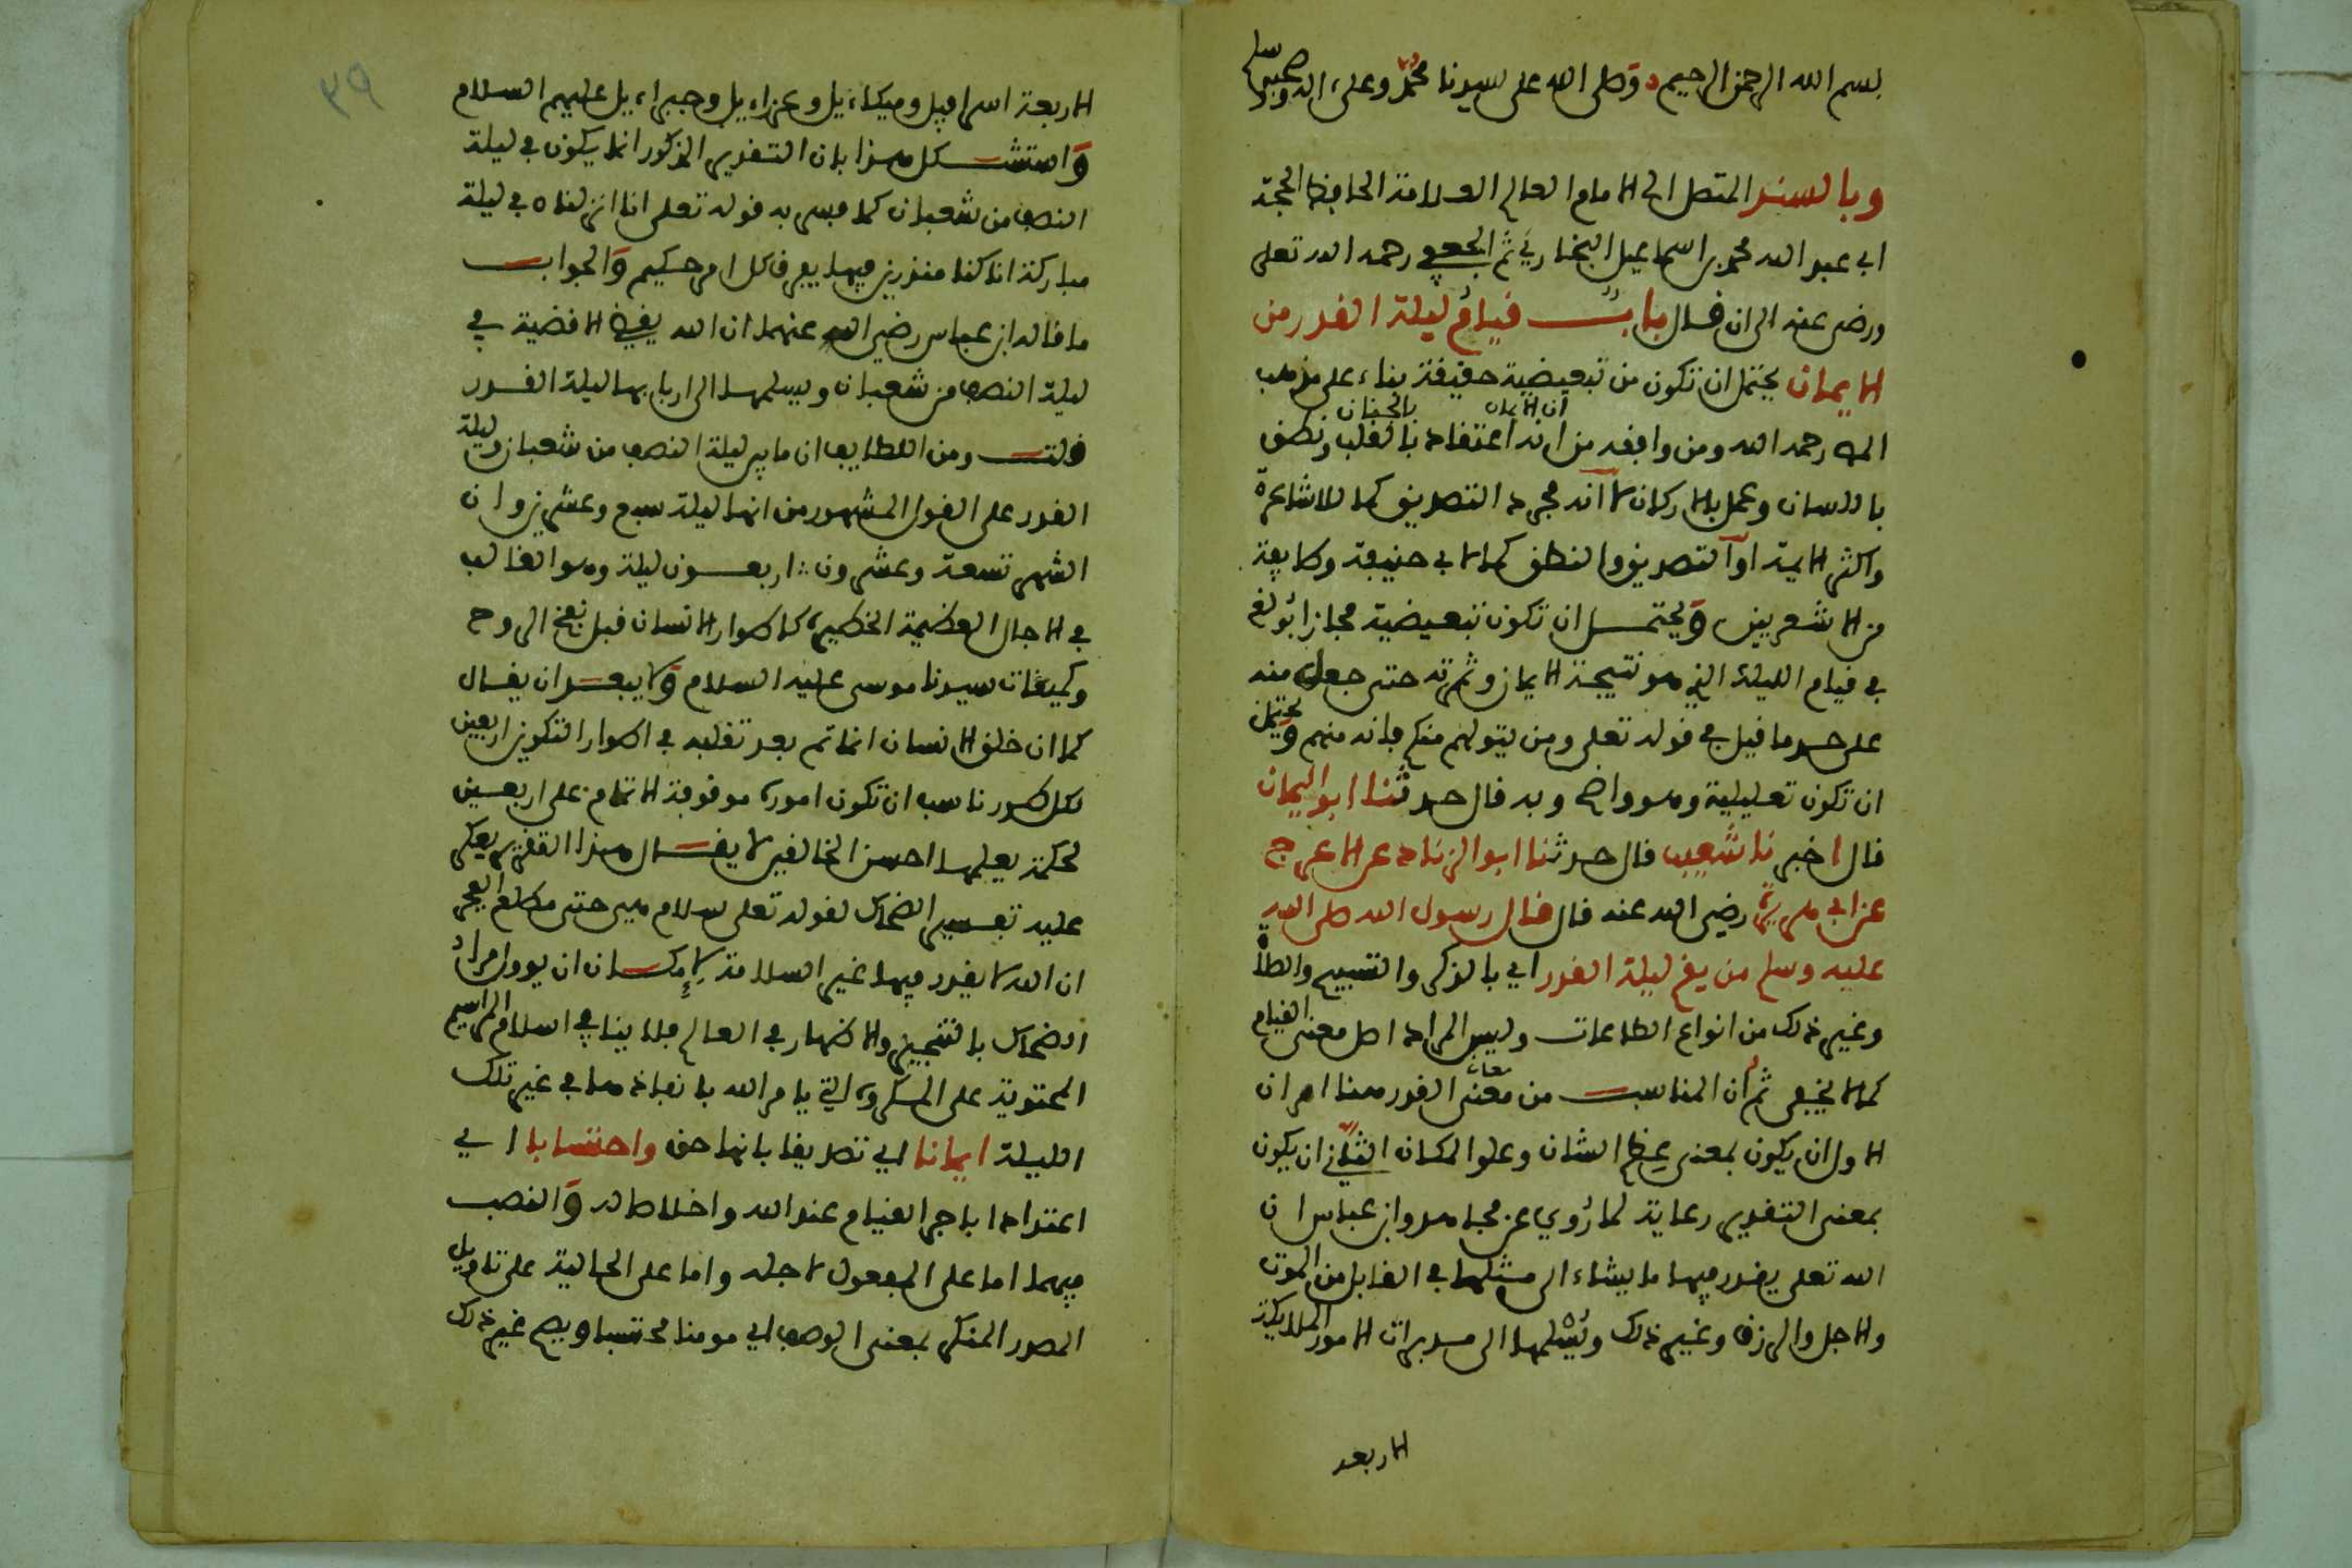 بسم الله الرحمن الرحيم وصلى الله على سيدنا محمد وعلى اله وصحبه وسلم
وبالسند المتصل الى الامام العالم العلامة الحافظ الحجة
ابي عبد الله محمد بن اسماعيل البخاري ثم الجعفي رحمه الله تعلى
ورضى عنه الى ان قال باب قيام ليلة القدر من
الايمان يحتمل ان تكون من تبعيضية حقيقة بناء على مذهب
ان الايمان بالجنان
رحمه الله ومن وافقه من انه اعتقاد بالقلب ونطق
باللسان وعمل بالاركان لا انه مجرد التصديق كما للاشاعرة
واكثر الايمة او التصديق والنطق كما لابي حنيفة وطايفة
من الاشعريين ويحتمل ان تكون تبعيضية مجازا بولغ
في قيام الليلة الذي هو نتيجة الايمان وثمرته حتى جعل منه
على حد ما قيل في قوله تعلى ومن يتولهم منكم فانه منهم ويحتمل
ان تكون تعليلية وهو واضح وبه قال حدثنا ابو اليمان
قال اخبرنا شعيب قال حدثنا ابو الزناد عن الاعرج
عن ابي هريرة رضي الله عنه قال قال رسول الله صلى الله
عليه وسلم من يقم ليلة القدر اي بالذكر والتسبيح والصلاة
وغير ذلك من انواع الطاعات وليس المراد اصل معنى القيام
كما لا يخفى ثم ان المناسب من معنى القدر هنا امران
الاول ان يكون بمعنى عظم الشان وعلو المكان الثاني ان يكون
بمعنى التقدير رعاية لما روي عن مجاهد وابن عباس ان
الله تعلى يقدر فيها ما يشاء الى مثلها في القابل من الموت
والاجل والرزق وغير ذلك ويسلمها الى مدبرات الامور الملايكة
الاربعة
٣٩
الاربعة اسرافيل وميكاءيل وعزراءيل وجبراءيل عليهم السلام
واستشكل هذا بان التقدير المذكور انما يكون في ليلة
النصف من شعبان كما فسر به قوله تعلى انا انزلناه في ليلة
مباركة انا كنا منذرين فيها يفرق كل امر حكيم والجواب
ما قاله ابن عباس رضي الله عنهما ان الله يقضي الاقضية في
ليلة النصف من شعبان ويسلمها الى اربابها ليلة القدر
قلت ومن اللطايف ان ما بين ليلة النصف من شعبان وليلة
القدر على القول المشهور من انها ليلة سبع وعشرين وان
الشهر تسعة وعشرون اربعون ليلة وهو الغالب
في الاجال العظيمة الخطيرة كاطوار الانسان قبل نفخ الروح
وكميقات سيدنا موسى عليه السلام ولا يبعد ان يقال
كما ان خلق الانسان انما تم بعد تقلبه في اطوار التكوين اربعين
لكل طور ناسب ان تكون اموره موقوفة الاتمام على اربعين
لحكمة يعلمها احسن الخالقين لا يقال هذا التقدير يعكر
عليه تفسير الضحاك لقوله تعلى سلام هي حتى مطلع الفجر
ان الله لا يقدر فيها غير السلامة لامكان ان يوول مراد
الضحاك بالتنجيز والاظهار في العالم فلا ينافي اسلام المراسيم
المحتوية على المكروه التي يامر الله بانفاذها في غير تلك
الليلة ايمانا اي تصديقا بانها حق واحتسابا اي
اعتدادا باجر القيام عند الله واخلاصا له والنصب
فيهما اما على المفعول لاجله واما على الحالية على تاويل
المصدر المنكر بمعنى الوصف اي مومنا محتسبا ويصح غير ذلك